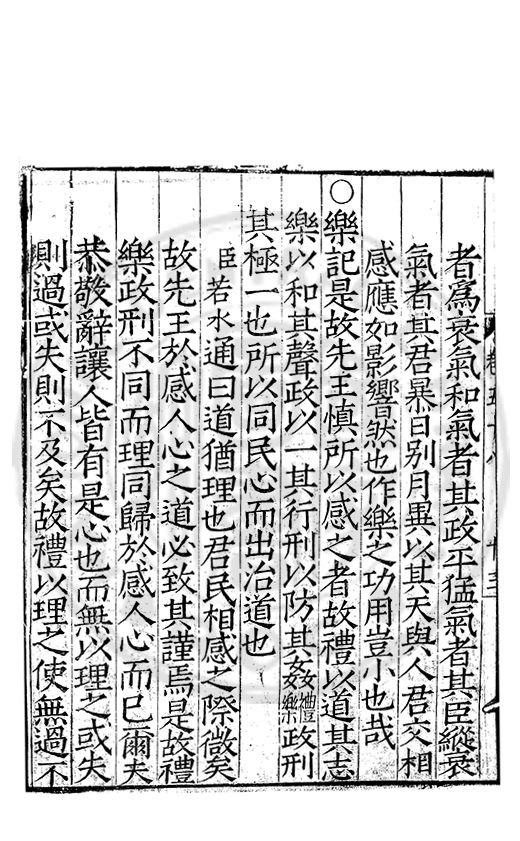 者爲衰氣和氣者其政平猛氣者其臣縱衰
氣者其君暴日别月異以其天與人君交相
感應如影響然也作樂之功用豈小也哉
○樂記是故先王慎所以感之者故禮以道其志
樂以和其聲政以一其行刑以防其姦禮樂政刑
其極一也所以同民心而出治道也
臣若水通曰道猶理也君民相感之際微矣
故先王於感人心之道必致其謹焉是故禮
樂政刑不同而理同歸於感人心而已爾夫
恭敬辭讓人皆有是心也而無以理之或失
則過或失則不及矣故禮以理之使無過不